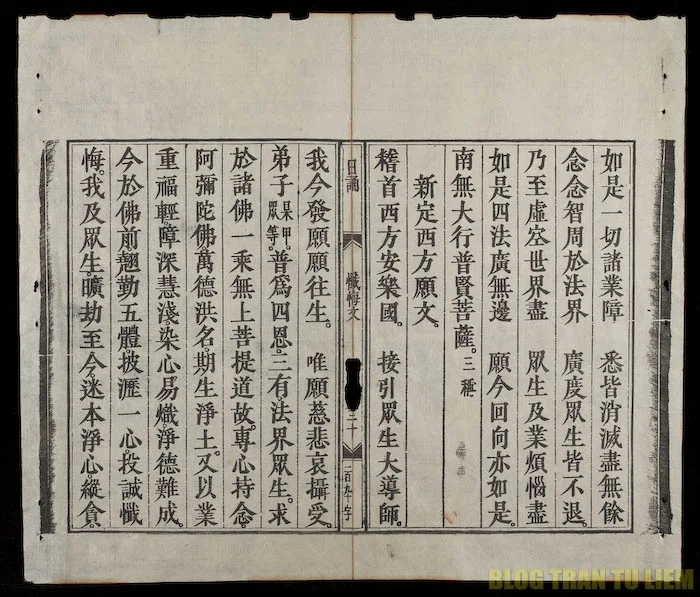 如是一切諸業障　悉皆消滅盡無餘
念念智周於法界　廣度眾生皆不退。
乃至虛空世界盡　眾生及業煩惱盡
如是四法廣無邊　願今回向亦如是。
南無大行普賢菩薩。三稱
新定西方願文。
稽首西方安樂國。接引眾生大導師。
日誦　懺悔文　三十　一百九十字
我今發願願往生。　唯願慈悲哀攝受。
弟子某甲眾等。普為四恩。三有。法界眾生。求
於諸佛一乘無上菩提道故。專心持念。
阿彌陀佛。萬德洪名。期生淨土。又以業
重福輕。障深慧淺。染心易熾。淨德難成。
今於佛前。翹勤五體。披瀝一心。投誠懺
悔。我及眾生。曠劫至今。迷本淨心。縱貪。
BLOG TRAN TU LIEM